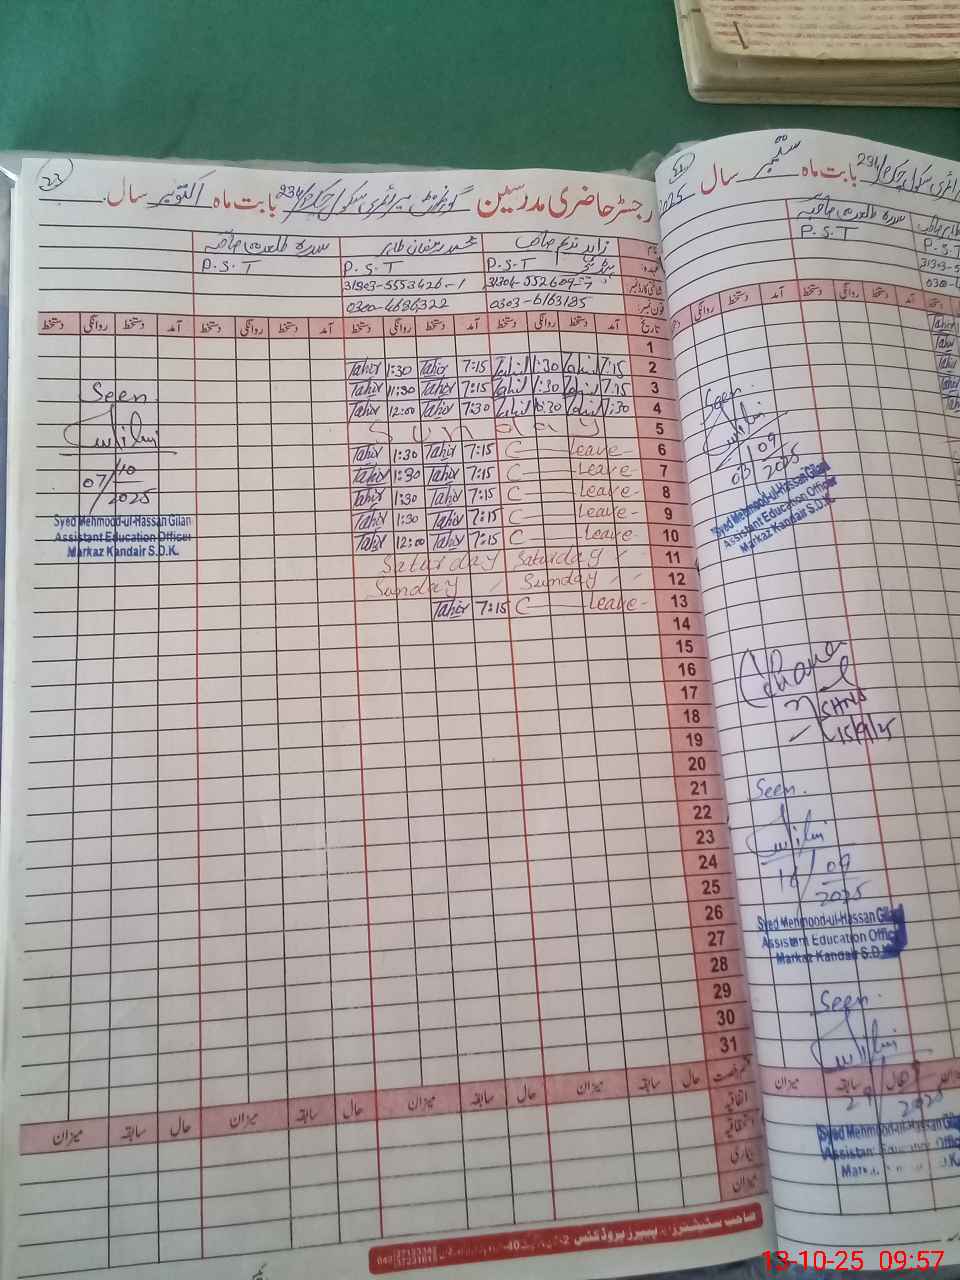 23
رجسٹر حاضری مدرسین گورنمنٹ پرائمری سکول چک 234/ بابت ماہ اکتوبر سال
نام زاہد ندیم صاحب محمد رمضان طاہر
عہدہ P.S.T P.S.T P.S.T
31303-5553426-1
فون نمبر 0303-6163185 0300-4686322
تاریخ آمد دستخط روانگی دستخط آمد دستخط روانگی دستخط آمد دستخط روانگی دستخط آمد دستخط روانگی دستخط
1
Tahir 1:30 Tahir 7:15 1:30 7:15 2
Tahir 11:30 Tahir 7:15 1:30 7:15 3
Tahir 12:00 Tahir 7:30 10:30 7:30 4
Sunday 5
Tahir 1:30 Tahir 7:15 C Leave 6
Tahir 1:30 Tahir 7:15 C Leave 7
Tahir 1:30 Tahir 7:15 C Leave 8
Tahir 1:30 Tahir 7:15 C Leave 9
Tahir 12:00 Tahir 7:15 C Leave 10
Saturday Saturday 11
Sunday Sunday 12
Tahir 7:15 C Leave 13
14
15
16
17
18
19
20
21
22
23
24
25
26
27
28
29
30
31
Seen.
07/10
2025
Syed Mehmood-ul-Hassan Gilani
Assistant Education Officer
Markaz Kandair S.D.K.
قسم رخصت حال سابقہ میزان حال سابقہ میزان حال سابقہ میزان حال سابقہ میزان
اتفاقیہ
استحقاقیہ
بیماری
میزان
صاحب سٹیشنرز اینڈ پیپرز پروڈکٹس
بابت ماہ ستمبر سال 2025
P.S.T
Seen.
03/09
2025
Syed Mehmood-ul-Hassan Gilani
Assistant Education Officer
Markaz Kandair S.D.K.
SHNS
15/9/25
Seen.
16/09
2025
Syed Mehmood-ul-Hassan Gilani
Assistant Education Officer
Markaz Kandair S.D.K.
Seen.
میزان سابقہ حال
29
2025
Syed Mehmood-ul-Hassan Gilani
Assistant Education Officer
13-10-25 09:57